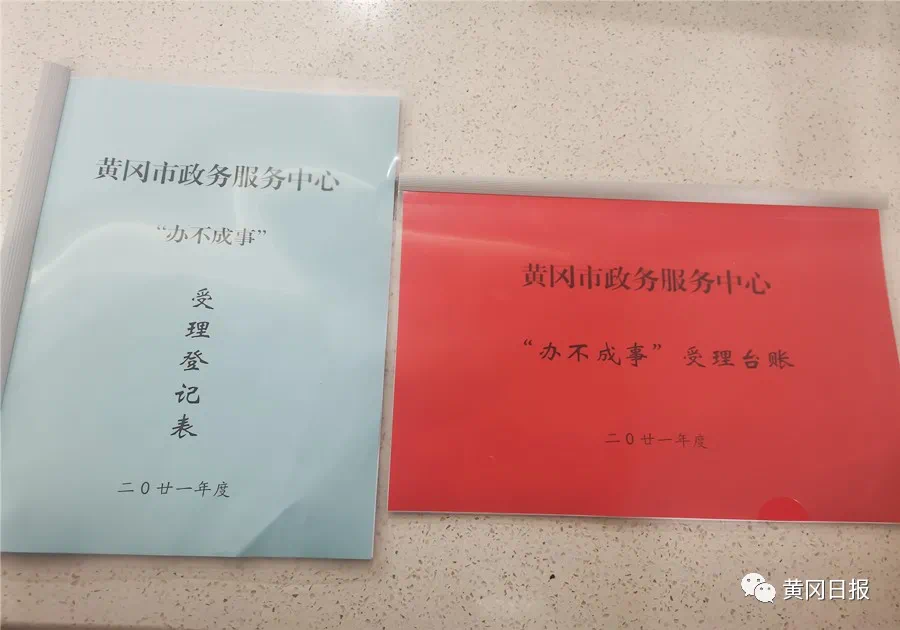 黄冈市政务服务中心
“办不成事”
受理登记表
二〇廿一年度
黄冈市政务服务中心
“办不成事”受理台账
二〇廿一年度
黄冈日报